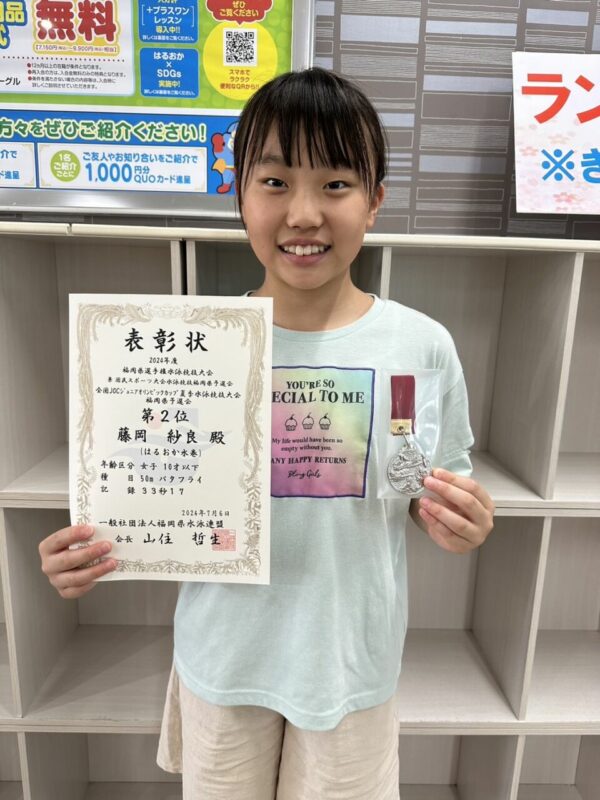 無料
[7,150円(税込)～9,900円(税込)相当]
+プラスワン
レッスン
導入中!!
はるおか
×
SDGs
実施中!
ご覧ください
スマホで
ラクラク
便利なQRから!!
方々をぜひご紹介ください!
1名
ご紹介
ごとに
ご友人やお知り合いをご紹介で
1,000円分
QUOカード進呈
ラン
※き
表彰状
2024年度
福岡県選手権水泳競技大会
兼 国民スポーツ大会水泳競技福岡県予選会
全国JOCジュニアオリンピックカップ夏季水泳競技大会
福岡県予選会
第2位
藤岡 紗良 殿
(はるおか水巻)
年齢区分 女子 10才以下
種 目 50m バタフライ
記 録 33秒17
2024年7月6日
一般社団法人福岡県水泳連盟
会長 山住 哲生
YOU'RE SO
ECIAL TO ME
My life would have been so
empty without you.
ANY HAPPY RETURNS